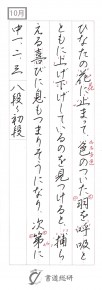 10月
ひなたの花に止まって、色のついた羽を呼吸と
ともに上げ下げしているのを見つけると、捕ら
える喜びに息もつまりそうになり、次第に
中一、二、三 八段~初段
書道総研